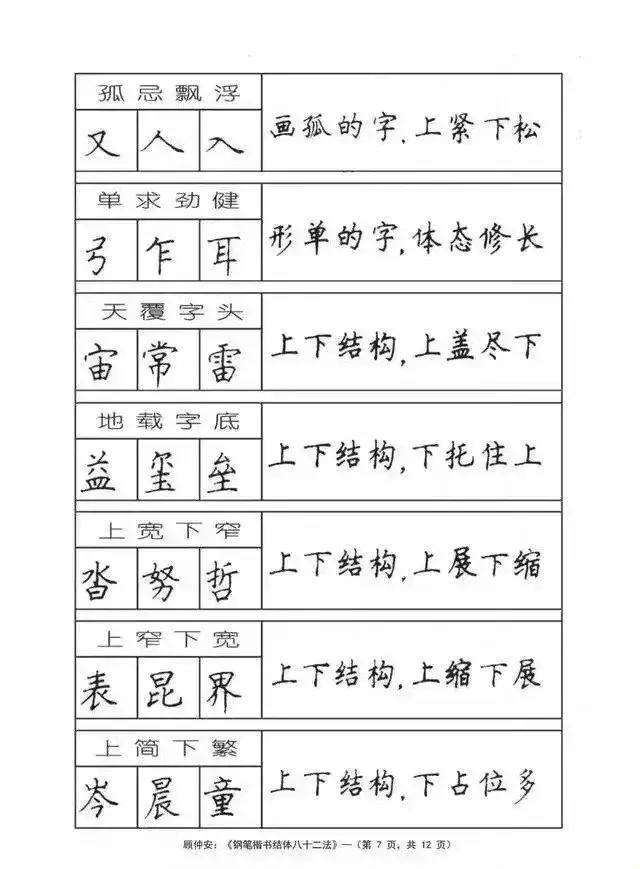 孤忌飘浮
又人入
画孤的字,上紧下松
单求劲健
弓乍耳
形单的字,体态修长
天覆字头
宙常雷
上下结构,上盖尽下
地载字底
益玺垒
上下结构,下托住上
上宽下窄
沓努哲
上下结构,上展下缩
上窄下宽
表昆界
上下结构,上缩下展
上简下繁
岑晨童
上下结构,下占位多
顾仲安:《钢笔楷书结体八十二法》—(第 7 页,共 12 页)